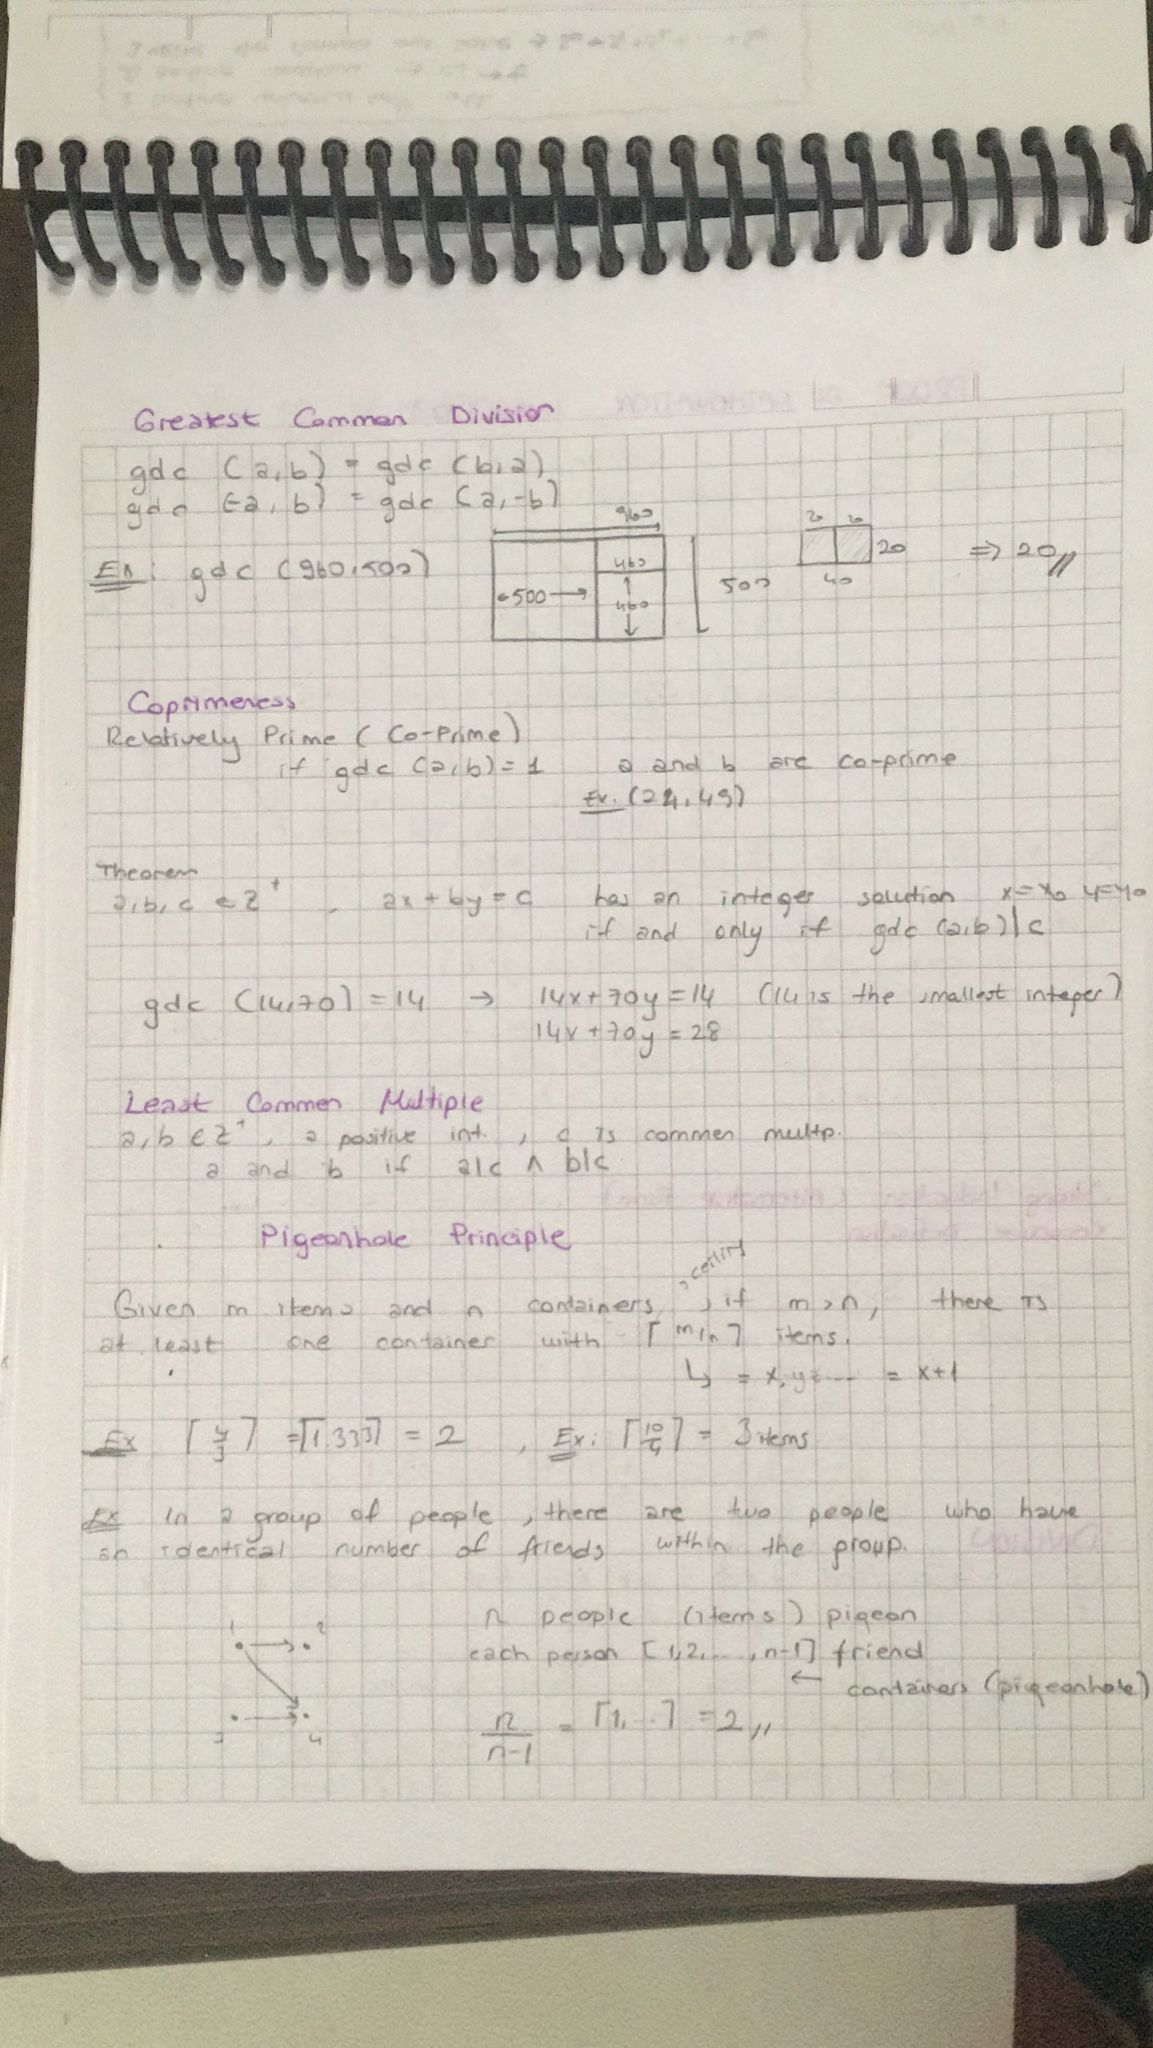 Greatest Common Division
gdc (a,b) = gdc (b,a)
gdc (-a,b) = gdc (a,-b)
Ex: gdc (960,500)
960
460
←500→
460
500
20 20
20
40
⇒ 20//
Coprimeness
Relatively Prime (Co-Prime)
if gdc (a,b) = 1 a and b are co-prime
Ex. (24,49)
Theorem
a,b,c ∈ Z⁺, ax+by=c has an integer solution x=x₀ y=y₀
if and only if gdc (a,b)|c
gdc (14,70) = 14 → 14x+70y=14 (14 is the smallest integer)
14x+70y=28
Least Commen Multiple
a,b ∈ Z⁺, a positive int., c is commen multp.
a and b if a|c ∧ b|c
Pigeonhole Principle
ceiling
Given m items and n containers, if m>n, there is
at least one container with ⌈m/n⌉ items.
↳ = x,yz... = x+1
Ex ⌈4/3⌉ = ⌈1,333⌉ = 2, Ex: ⌈10/4⌉ = 3 items
Ex In a group of people, there are two people who have
an identical number of friends within the group.
1 2
3 4
n people (items) pigeon
each person [1,2,...,n-1] friend
← containers (pigeonhole)
n/n-1 = ⌈1,...⌉ = 2//